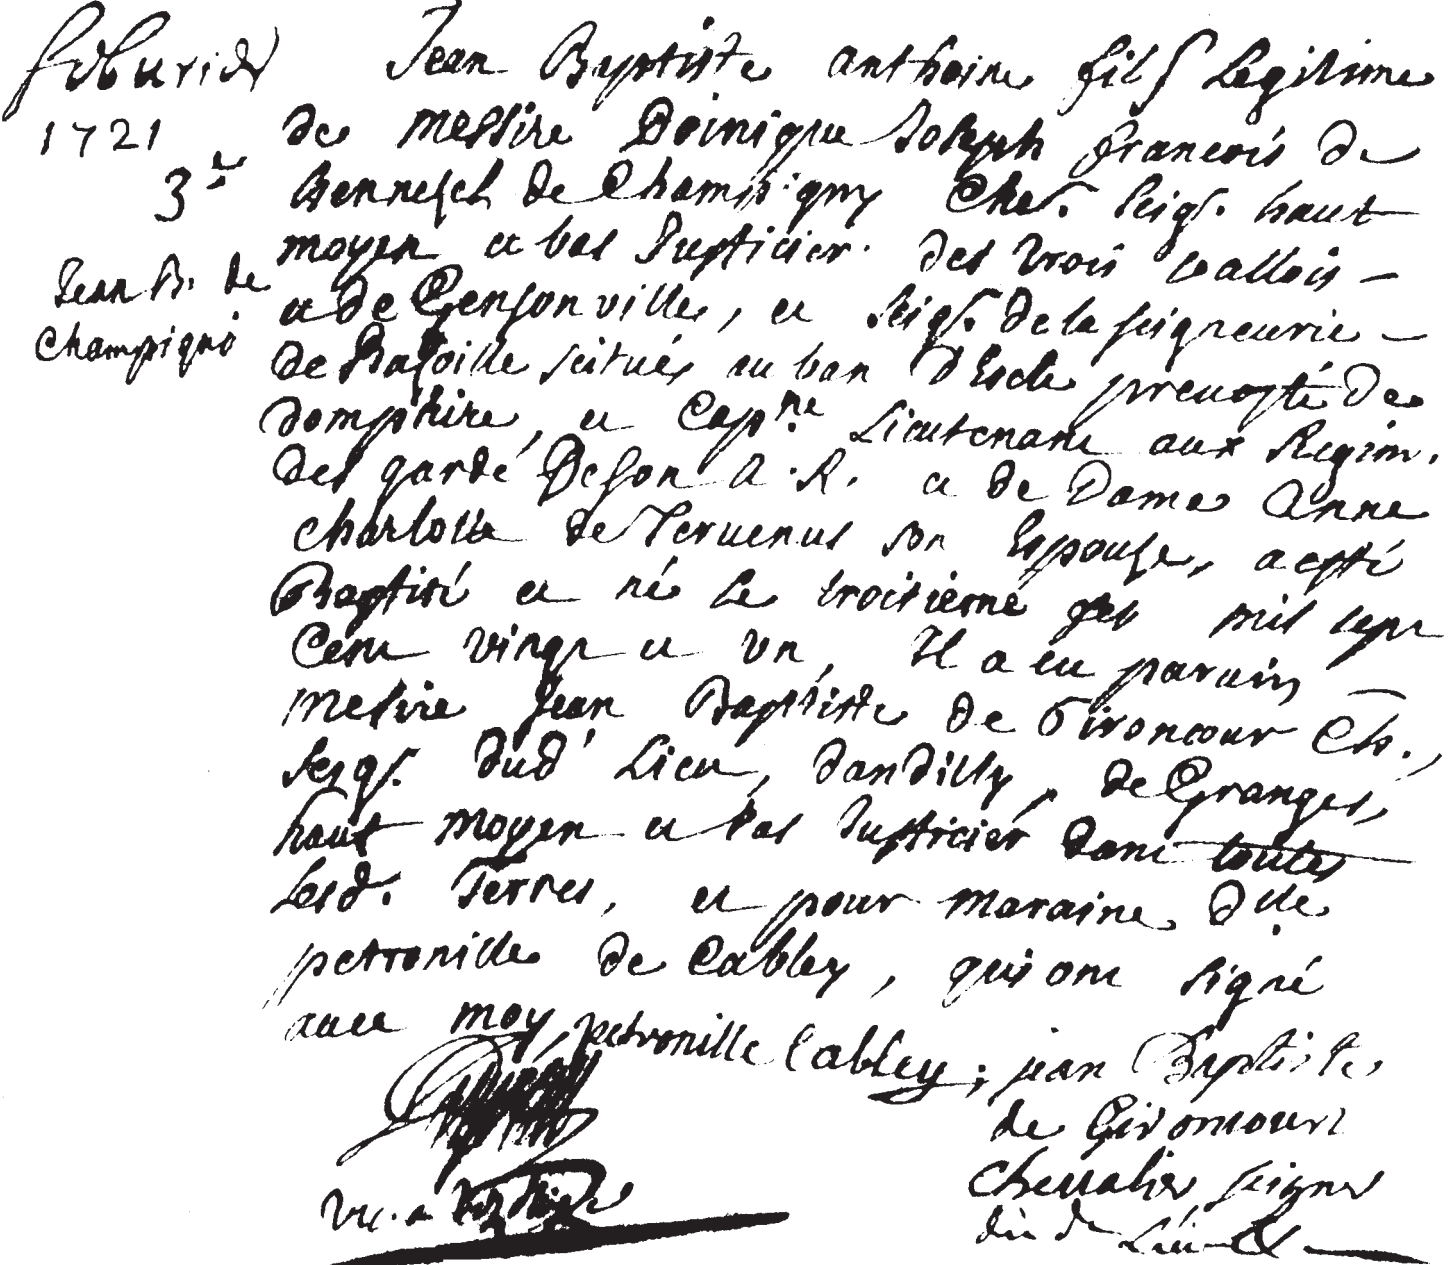 feburier
1721
3e
Jean B. de
Champigné
Jean Baptiste anthoine fils Legitime
de messire Doinique Joseph francois de
Hennesel de Champigny Cher. seigr. haut
moyen et bas Justicier des trois vallois
et de Gensonville, et seigr. de la seigneurie
de scitués au ban d'Escle prevosté de
domphire, et Capne. Lieutenant aux Regim.
des garde De son A. R. et de Dame Anne
charlotte de Tervenus son Espouse, a esté
Baptisé et né Le troisieme feb mil sept
Cent vingt et un, Il a eu parain
messire Jean Baptiste de Gironcour Ch.,
seigr. dud Lieu, dandilly, de Granges,
haut moyen et bas Justicier dans toutes
Lesd. Terres, et pour maraine dlle.
petronille de Cabley, qui ont signé
avec moy, petronille Cabley; jean Baptiste
de Gironcourt
chevvalier seigneur
du d Lieu